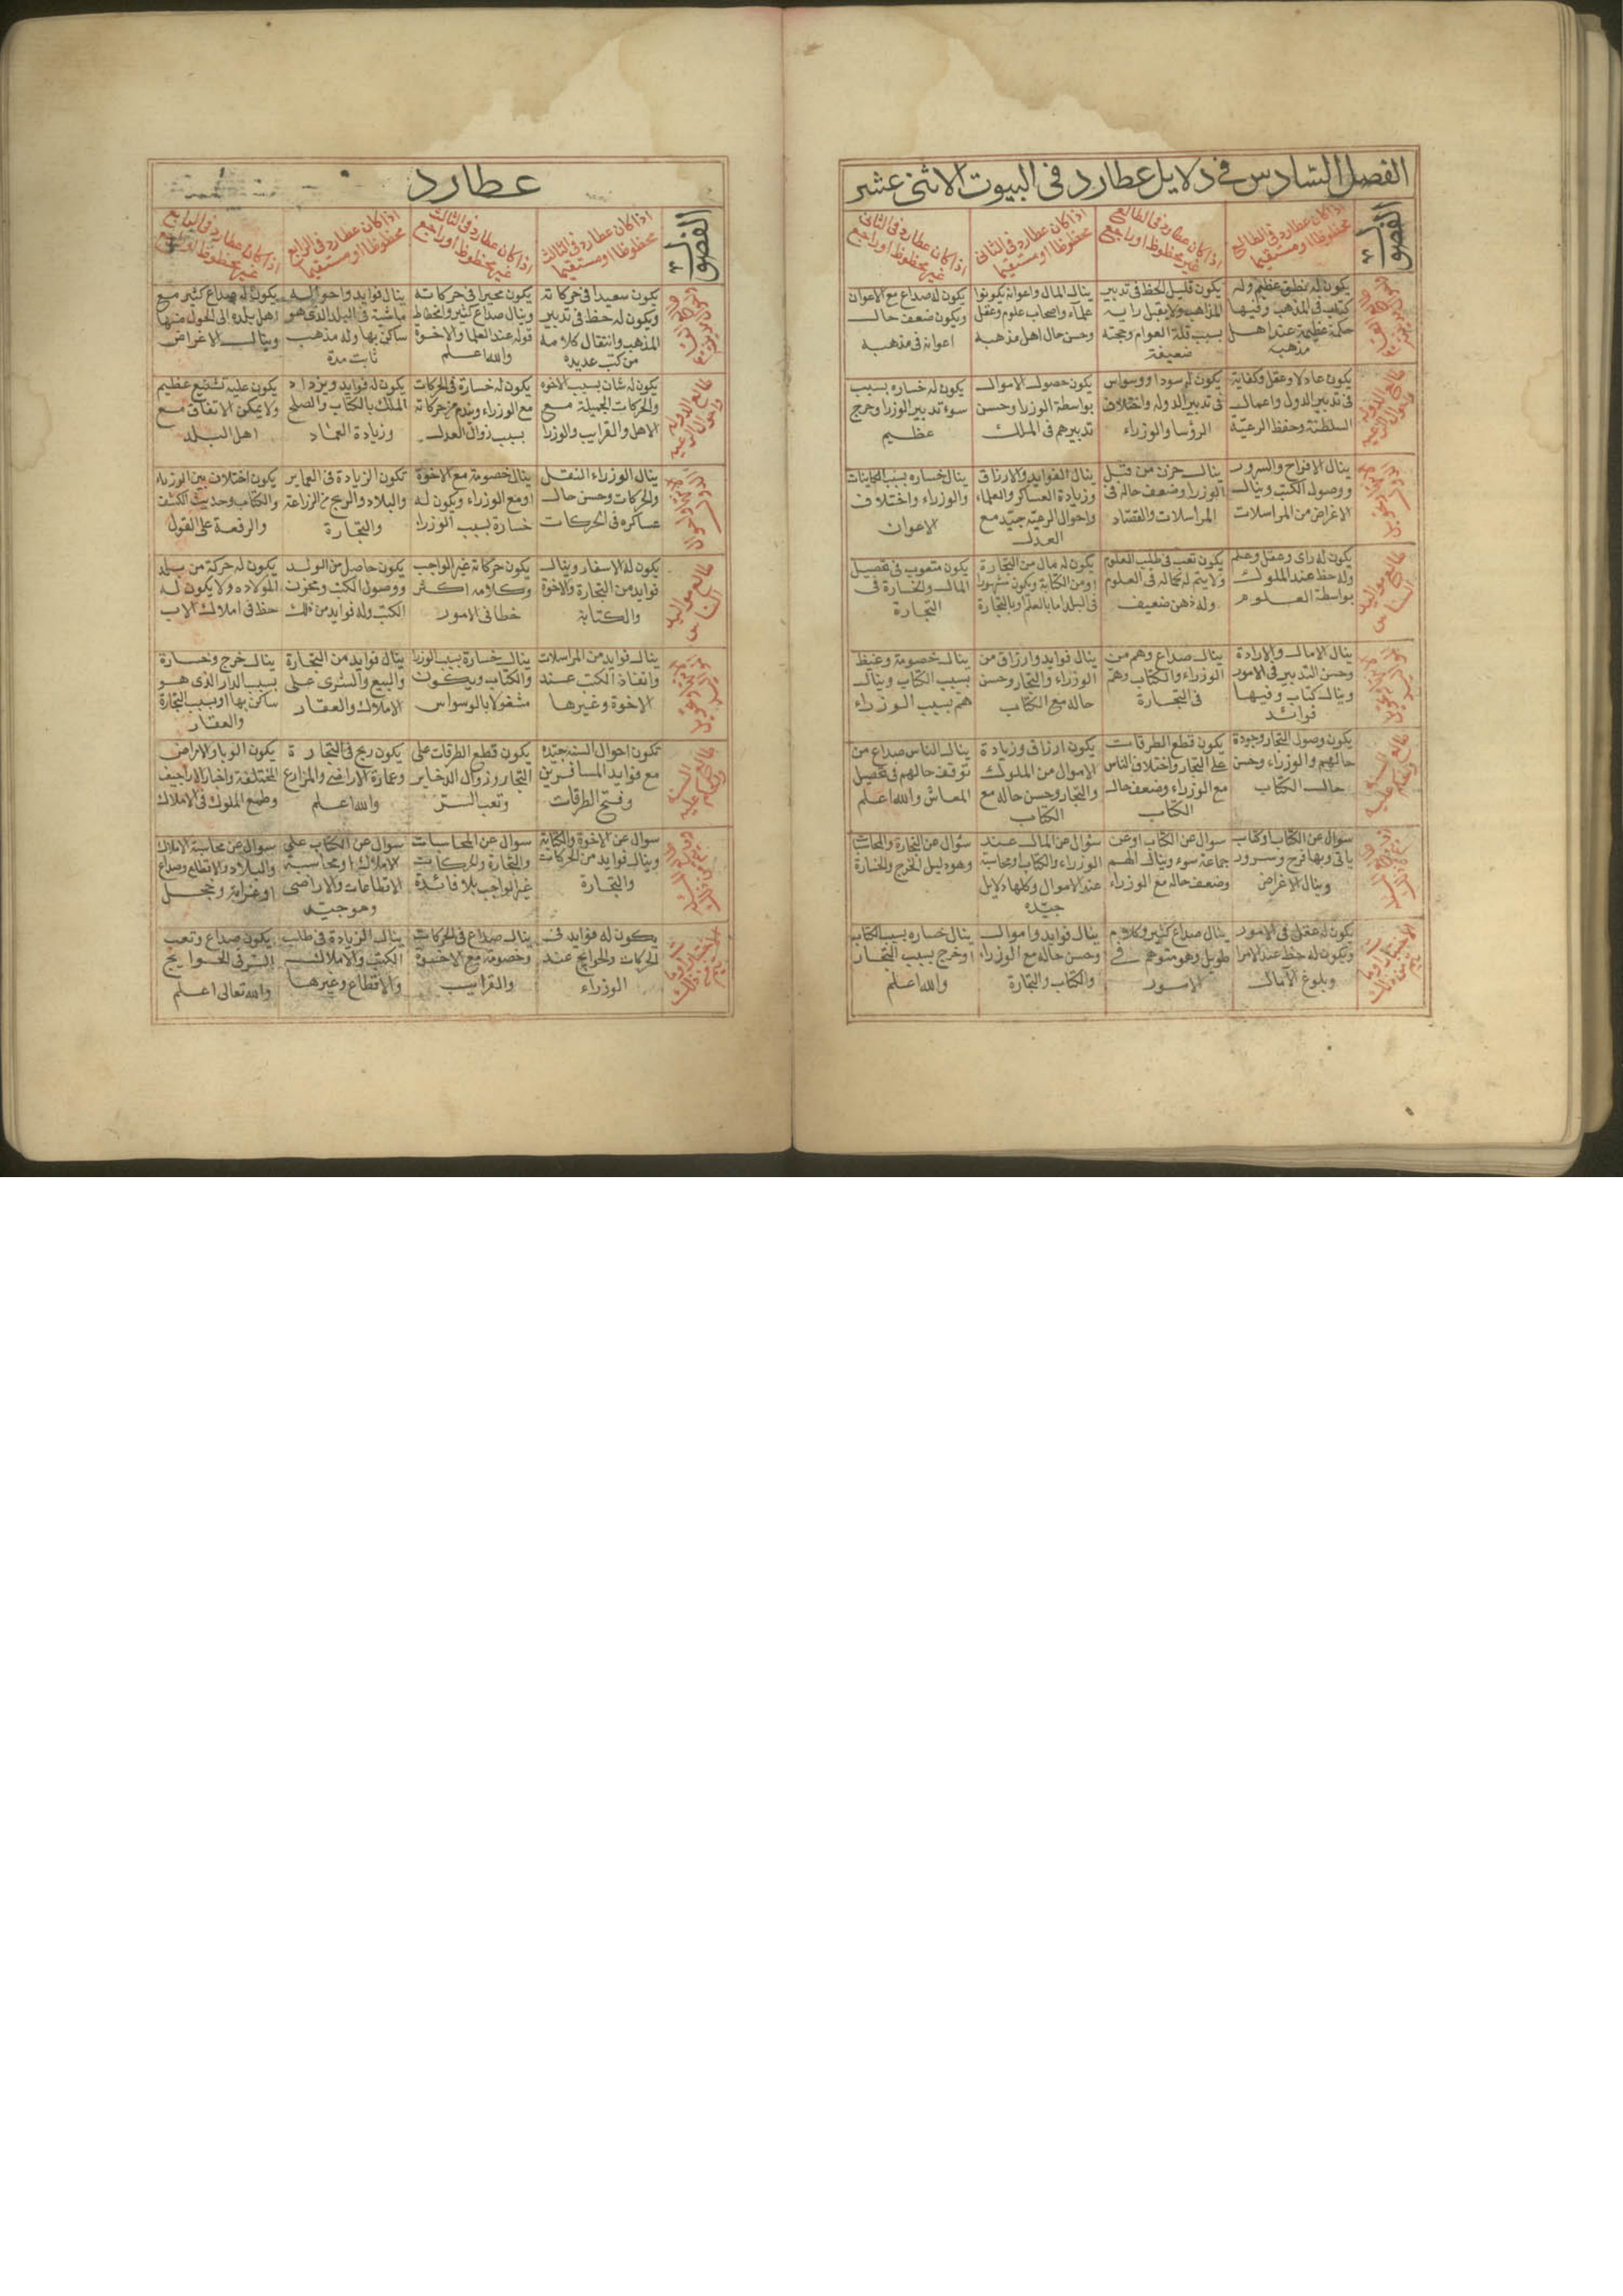 الفصل السادس في دلايل عطارد فى البيوت الاثنى عشر
الفصول
اذا كان عطارد فى الطالع
محظوظا او مستقيما
اذا كان عطارد فى الطالع
غير محظوظ او راجع
اذا كان عطارد فى الثانى
محظوظا او مستقيما
اذا كان عطارد فى الثانى
غير محظوظ او راجع
يكون له منطق عظيم وله
كتب فى المذهب وفيها
حكمة عظيمة عند اهل
مذهبه
يكون قليل الحظ فى تدبير
المذاهب ولا يقبل رايه
بسبب قلة العوام وحجته
ضعيفة
ينال المال واعوانه يكونوا
علماء واصحاب علوم وعقل
وحسن حال اهل مذهبه
يكون له صداع مع الاعوان
ويكون ضعف حال
اعوانه فى مذهبه
طالع الدولة
واحوال الرعية
يكون عادلا وعقل وكفاية
فى تدبير الدول واعمال
السلطنة وحفظ الرعية
يكون له سودا ووسواس
فى تدبير الدولة واختلاف
الرؤسا والوزراء
يكون حصول الاموال
بواسطة الوزرا وحسن
تدبيرهم فى الملك
يكون له خساره بسبب
سوء تدبير الوزرا وخرج
عظيم
ينال الافراح والسرور
ووصول الكتب وينال
الاغراض من المراسلات
ينال حزن من قبل
الوزرا وضعف حاله فى
المراسلات والقصاد
ينال الفوايد والارزاق
وزيادة العساكر والعلماء
واحوال الرعية جيد مع
العدل
ينال خساره بسبب الجنايات
والوزراء واختلاف
الاعوان
طالع مواليد
الناس
يكون له راى وعقل وعلم
وله حظ عند الملوك
بواسطة العلوم
يكون تعب فى طلب العلوم
ولا يتم له كماله فى العلوم
وله ذهن ضعيف
يكون له مال من التجارة
او من الكتابة ويكون مشهورا
فى البلد اما بالعلم او بالتجارة
يكون متعوب فى تحصيل
المال والخسارة فى
التجارة
ينال الامال والارادة
وحسن التدبير فى الامور
وينال كتاب وفيها
فوائد
ينال صداع وهم من
الوزراء والكتاب وهم
فى التجارة
ينال فوايد وارزاق من
الوزراء والتجار وحسن
حاله مع الكتاب
ينال خصومة وغيظ
بسبب الكتاب وينال
هم بسبب الوزراء
يكون وصول التجار وجودة
حالهم والوزراء وحسن
حال الكتاب
يكون قطع الطرقات
على التجار واختلاف الناس
مع الوزراء وضعف حال
الكتاب
يكون ارزاق وزيادة
الاموال من الملوك
والتجار وحسن حاله مع
الكتاب
ينال الناس صداع من
توقف حالهم فى تحصيل
المعاش والله اعلم
سوال عن الكتاب او كتاب
ياتى وبها فرح وسرور
وينال الاغراض
سوال عن الكتاب او عن
جماعة سوء وينال الهم
وضعف حاله مع الوزراء
سؤال عن المال عند
الوزراء والكتاب او محاسبة
عند الاموال وكلها دلايل
جيده
سؤال عن التجارة والمحاسبات
وهو دليل الخرج والخسارة
يكون له عقل فى الامور
ويكون له حظ عند الامرا
وبلوغ الآمال
ينال صداع كثير وكلام
طويل وهو متوهم فى
الامور
ينال فوايد واموال
وحسن حاله مع الوزراء
والكتاب والتجارة
ينال خساره بسبب الكتاب
او خرج بسبب التجار
والله اعلم
عطارد
الفصول
اذا كان عطارد فى الثالث
محظوظا او مستقيما
اذا كان عطارد فى الثالث
غير محظوظ او راجع
اذا كان عطارد فى الرابع
محظوظا او مستقيما
اذا كان عطارد فى الرابع
غير محظوظ او راجع
يكون سعيدا فى حركاته
ويكون له حظ فى تدبير
المذهب وانتقال كلامه
من كتب عديده
يكون محيرا فى حركاته
وينال صداع كثير وانحطاط
قوله عند العلما والاخوة
والله اعلم
ينال فوايد واحواله
ماشية فى البلد الذى هو
ساكن بها وله مذهب
ثابت مدة
يكون له صداع كثير مع
اهل بلده الى الحول منها
وينال الاغراض
طالع الدولة
واحوال الرعية
يكون له شان بسبب الاخوه
والحركات الجميلة مع
الاهل والقرايب والوزرا
يكون له خسارة فى الحركات
مع الوزراء ويندم من حركاته
بسبب زوال العدل
يكون له فوايد ويزداد
الملك بالكتاب والصلح
وزيادة العماد
يكون عليه تشنيع عظيم
ولا يمكن الاتفاق مع
اهل البلد
ينال الوزراء النقل
والحركات وحسن حال
عساكره فى الحركات
ينال خصومة مع الاخوة
او مع الوزراء ويكون له
خسارة بسبب الوزرا
تكون الزيادة فى العماير
والبلاد والربح من الزراعة
والتجارة
يكون اختلاف بين الوزراء
والكتاب وحديث الكشف
والرفعة على القول
طالع مواليد
الناس
يكون له الاسفار وينال
فوايد من التجارة والاخوة
والكتابة
يكون حركاته غير الواجب
وكلامه اكثر
خطا فى الامور
يكون حاصل من الولد
ووصول الكتب ومخزن
الكتب وله فوايد من ذلك
يكون له حركة من بلد
المولاده ولا يكون له
حظ فى املاك الاب
ينال فوايد من المراسلات
وانفاذ الكتب عند
الاخوة وغيرها
ينال خسارة بسبب الوزرا
والكتاب ويكون
مشغولا بالوسواس
ينال فوايد من التجارة
والبيع والشرى على
الاملاك والعقار
ينال خرج وخسارة
بسبب الدار الذى هو
ساكن بها او بسبب التجارة
والعقار
تكون احوال السنة جيده
مع فوايد المسافرين
وفتح الطرقات
يكون قطع الطرقات على
التجار وزوال الذخاير
وتعب السر
يكون ربح فى التجارة
وعمارة الاراضى والمزارع
والله اعلم
يكون الوبا والامراض
المختلفة واخبار الاراجيف
وطمع الملوك فى الاملاك
سوال عن الاخوة والكتابة
وينال فوايد من الحركات
والتجارة
سوال عن المحاسبات
والتجارة والحركات
غير الواجب بلا فائدة
سوال عن الكتاب على
الاملاك او محاسبة
الاقطاعات والاراضى
وهو جيد
سوال عن محاسبة الاملاك
والبلاد والاقطاع وصداع
او غرامة وخجل
يكون له فوايد فى
الحركات والحوايج عند
الوزراء
ينال صداع فى الحركات
وخصومة مع الاخوة
والقرايب
ينال الزيادة فى طلب
الكتب والاملاك
والاقطاع وغيرها
يكون صداع وتعب
السر فى الحوايج
والله تعالى اعلم